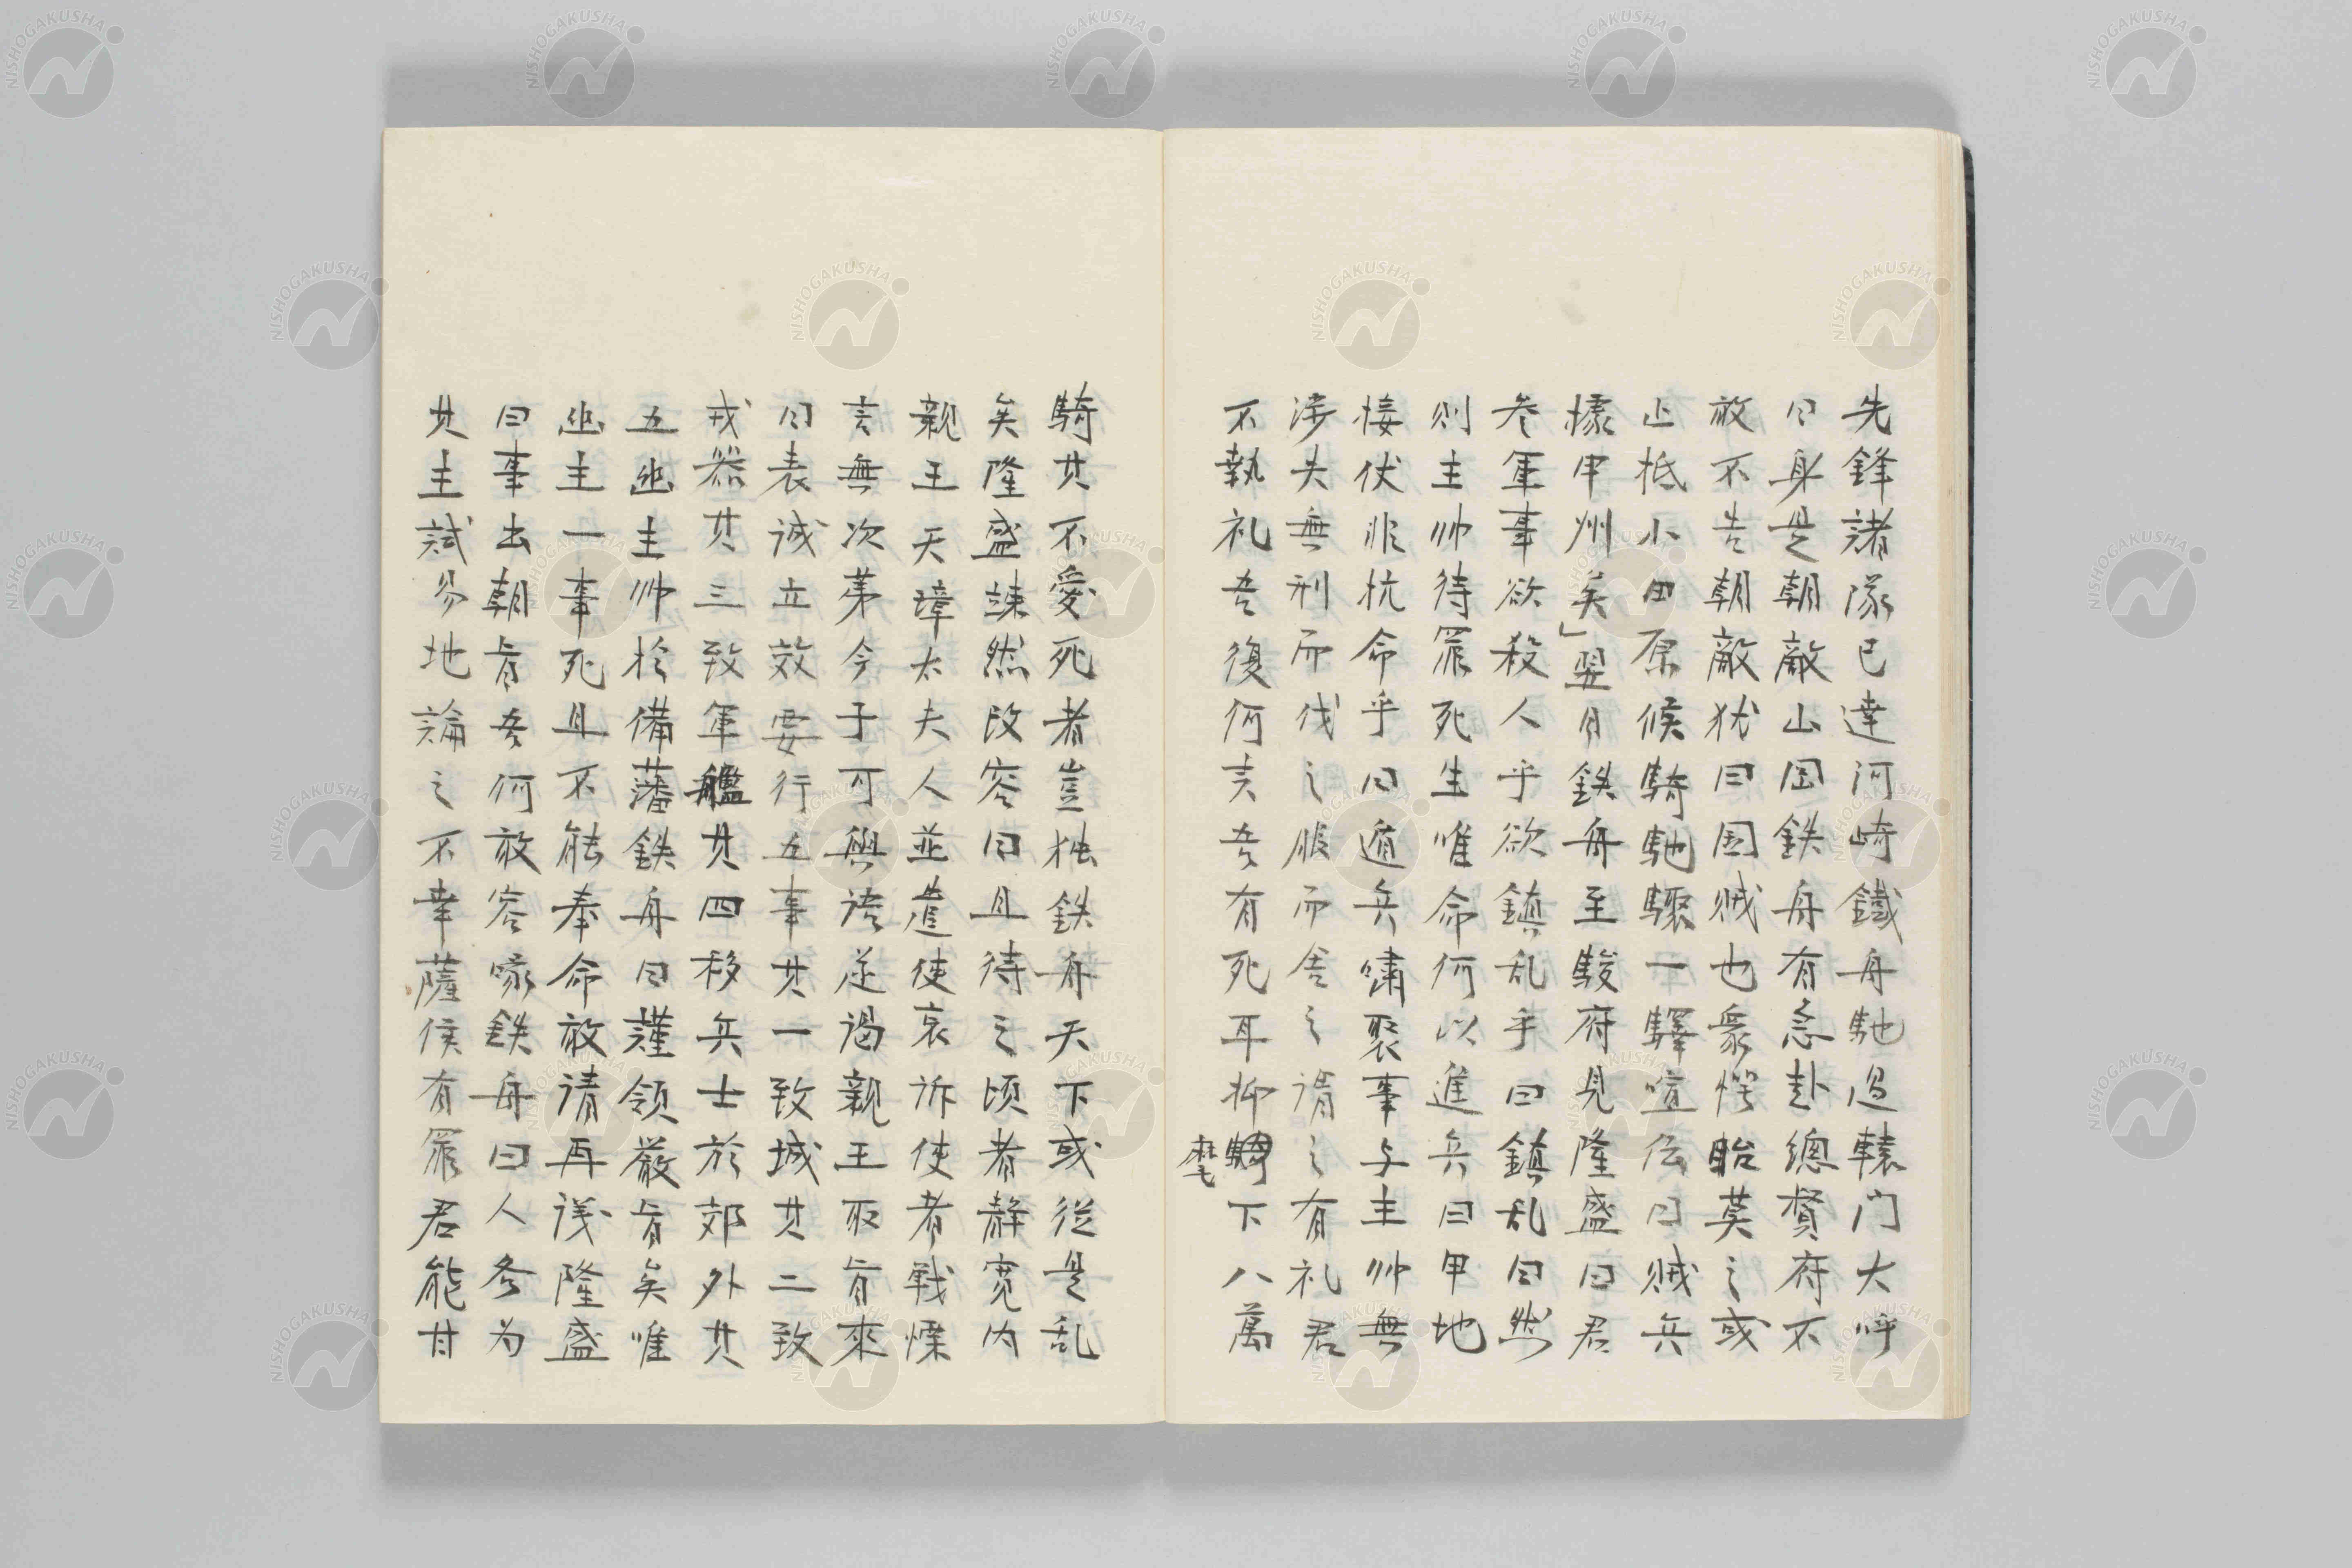 先鋒諸隊已達河崎鐵舟馳過轅门大呼
曰身是朝敵山岡鉄舟有急赴總督府不
敢不告朝敵犹曰国賊也衆愕眙莫之或
止抵小田原候騎馳驟一驛喧伝曰賊兵
據甲州矣」翌日鉄舟至駿府見隆盛曰君
参軍事欲殺人乎欲鎮乱乎曰鎮乱曰然
则主帅待罪死生惟命何以進兵曰甲地
接伏非抗命乎曰遁兵嘯聚事与主帅無
涉夫無刑而伐之服而舎之谓之有礼君
不執礼吾復何言吾有死耳抑騎下八萬
麾
騎其不愛死者豈独鉄舟天下或従是乱
矣隆盛竦然改容曰且待之頃者静寛内
親王天璋太夫人並遣使哀訴使者戦慄
言無次第今子可與语迋谒親王取旨來
曰表诚立效要行五事其一致城其二致
戎器其三致軍艦其四移兵士於郊外其
五幽主帅於備藩鉄舟曰謹領厳旨矣惟
幽主一事死且不能奉命敢请再议隆盛
曰事出朝旨吾何敢容喙鉄舟曰人各为
其主試易地論之不幸薩侯有罪君能甘